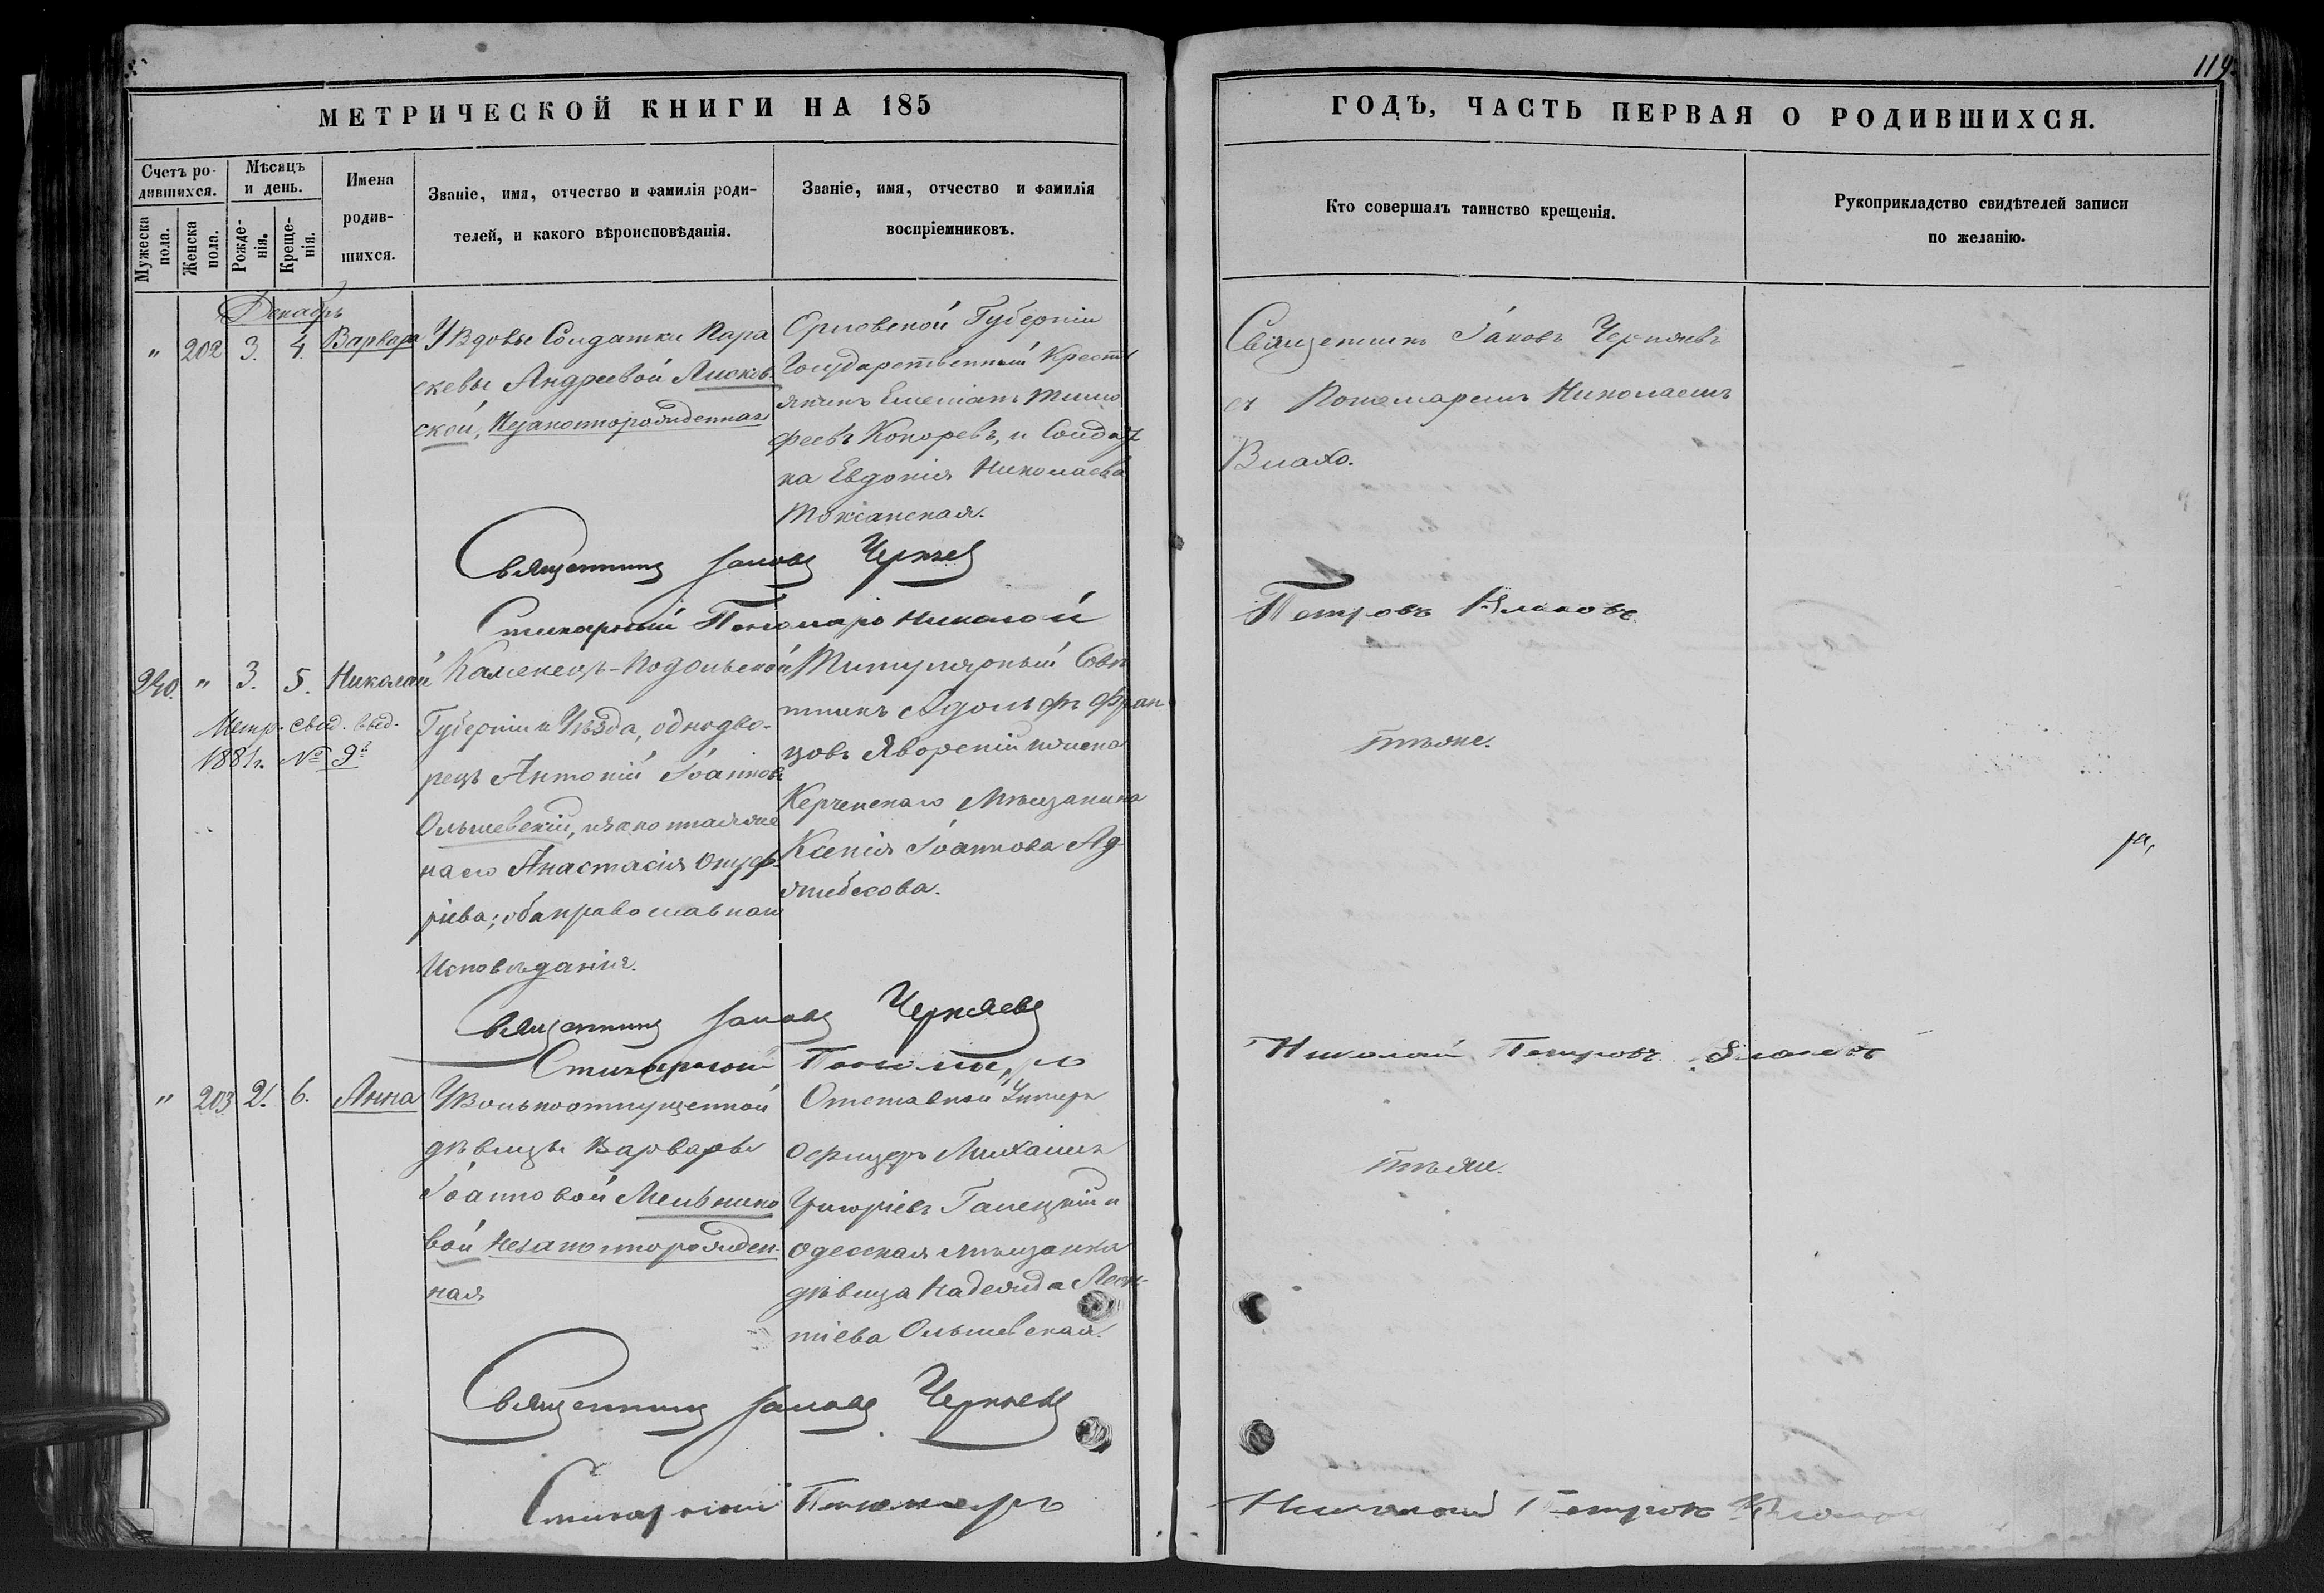 119.
МЕТРИЧЕСКОЙ КНИГИ НА 185
ГОДЪ, ЧАСТЬ ПЕРВАЯ О РОДИВШИХСЯ.
Счетъ ро-
дившихся.
Мужеска пола.
Женска пола.
Мѣсяцъ
и день.
Рожде-
нія.
Креще-
нія.
Имена
родив-
шихся.
Званіе, имя, отчество и фамилія роди-
телей, и какого вѣроисповѣданія.
Званіе, имя, отчество и фамилія
воспріемниковъ.
Кто совершалъ таинство крещенія.
Рукоприкладство свидѣтелей записи
по желанію.
Декабрь
" 202 3. 4. Варвара
У Вдовы Солдатки Пара
скевы Андреевой Лисков
ской, Незаконнорожденная
Орловской Губерніи
Государственный Кресть
янинъ Емеліанъ Тимо
феевъ Кокоревъ, и Солдат
ка Евдокія Николаева
Священникъ Іаковъ Черняевъ
съ Пономаремъ Николаемъ
Влахо.
Священникъ Іаковъ Черняевъ
Стихарный Пономарь Николай
Петровъ Влаховъ
240. " 3. 5. Николай
Метр. свид. выд.
1881г. № 9
Каменецъ-Подольской
Губерніи и Уѣзда, однодво-
рецъ Антоній Іоанновъ
Ольшевскій, и законная же
на его Анастасія Онуф-
ріева; оба православнаго
Исповѣданія.
Титулярный Совѣ
тникъ Адольфъ Фран
цовъ Яворскій и жена
Керченскаго Мѣщанина
Ксенія Іоаннова
Тѣже.
Священникъ Іаковъ Черняевъ
Стихарный Пономарь
Николай Петровъ Влаховъ
" 203 2. 6. Анна
У Вольноотпущенной
дѣвицы Варвары
Іоанновой Мельнико
вой Незаконнорожден-
ная
Отставной Унтеръ
Офицеръ Михаилъ
Григоріевъ Галецкій и
Одесская мѣщанка
дѣвица Надежда Леон-
тіева Ольшевская.
Тѣже.
Священникъ Іаковъ Черняевъ
Стихарный Пономарь
Николай Петровъ Влаховъ